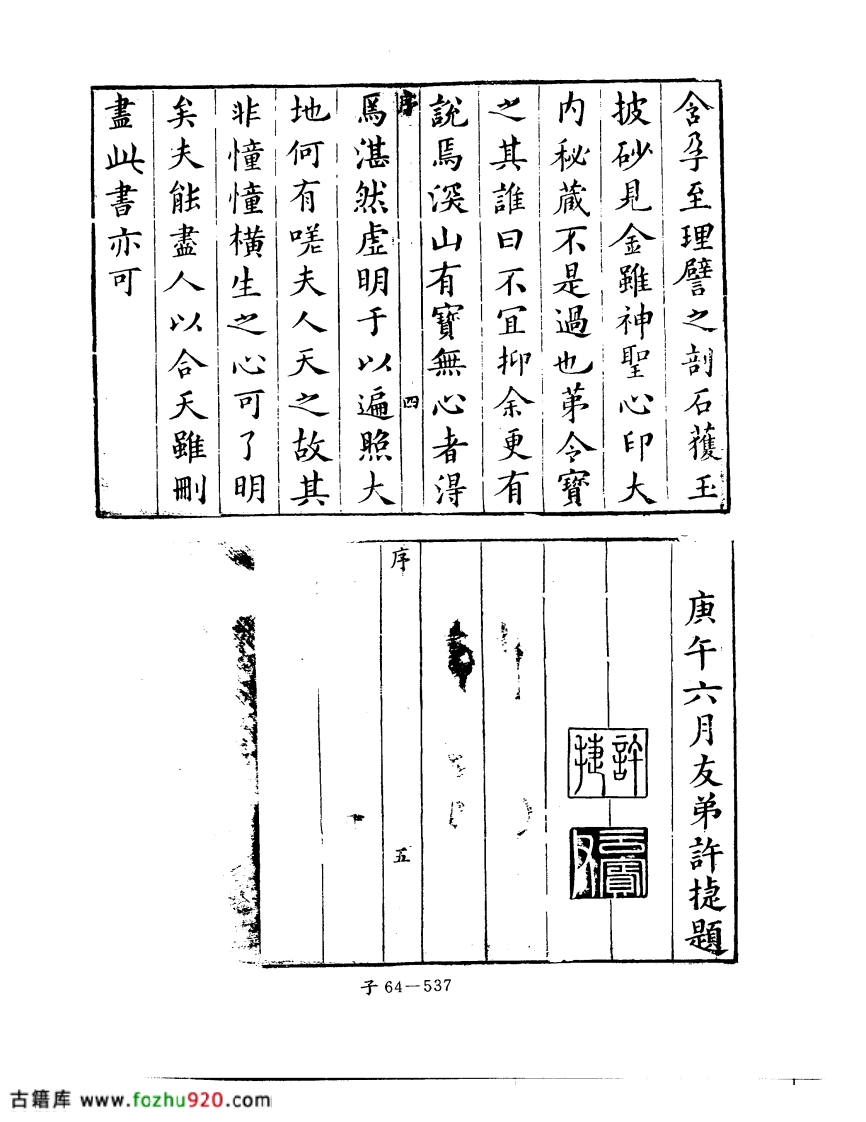 含孕至理譬之剖石獲玉
披砂見金雖神聖心印大
内秘藏不是過也苐令寶
之其誰曰不冝抑余更有
說焉深山有寶無心者得
序
四
焉湛然虛明于以遍照大
地何有嗟夫人天之故其
非憧憧橫生之心可了明
矣夫能盡人以合天雖刪
盡此書亦可
庚午六月友弟許捷題
許捷
序
五
子 64—537
古籍库 www.fozhu920.com